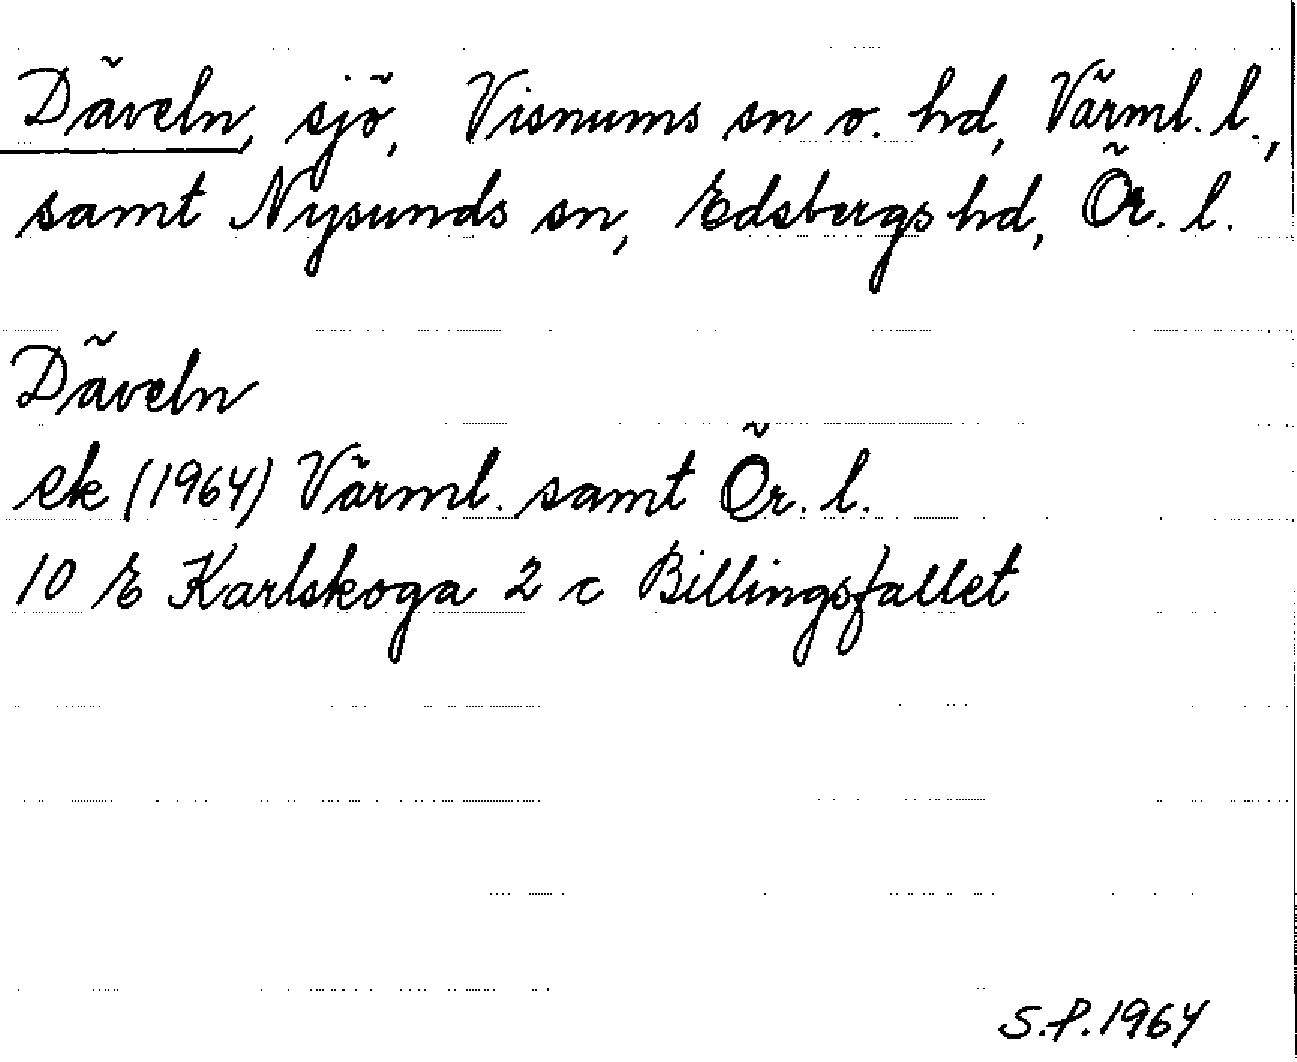 Däveln, sjö, Visnums sn o. hd, Värml. l.,
samt Nysunds sn, Edsbergs hd, Ör. l.
Däveln
ek (1964) Värml. samt Ör. l.
10 E Karlskoga 2 c Billingsfallet
S.P.1964